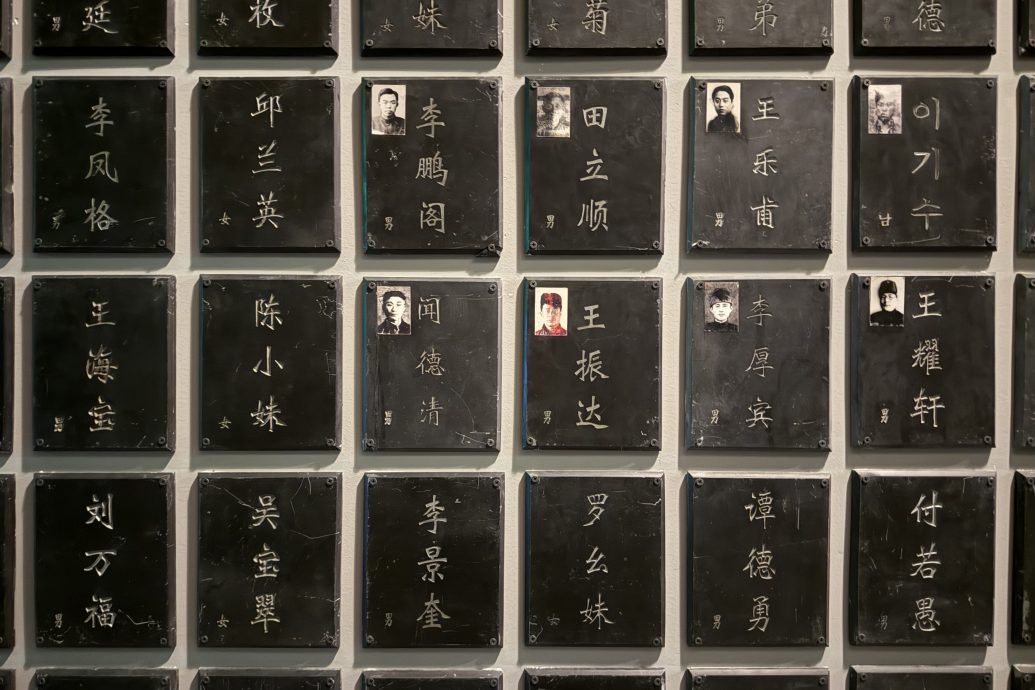 廷
男
枚
妹
女
菊
女
弟
男
德
男
李凤格
男
邱兰英
女
李鹏阁
男
田立顺
男
王乐甫
男
이기수
남
王海宝
男
陈小妹
女
闻德清
男
王振达
男
李厚宾
男
王耀轩
男
刘万福
男
吴宝翠
女
李景奎
男
罗幺妹
女
谭德勇
男
付若愚
男